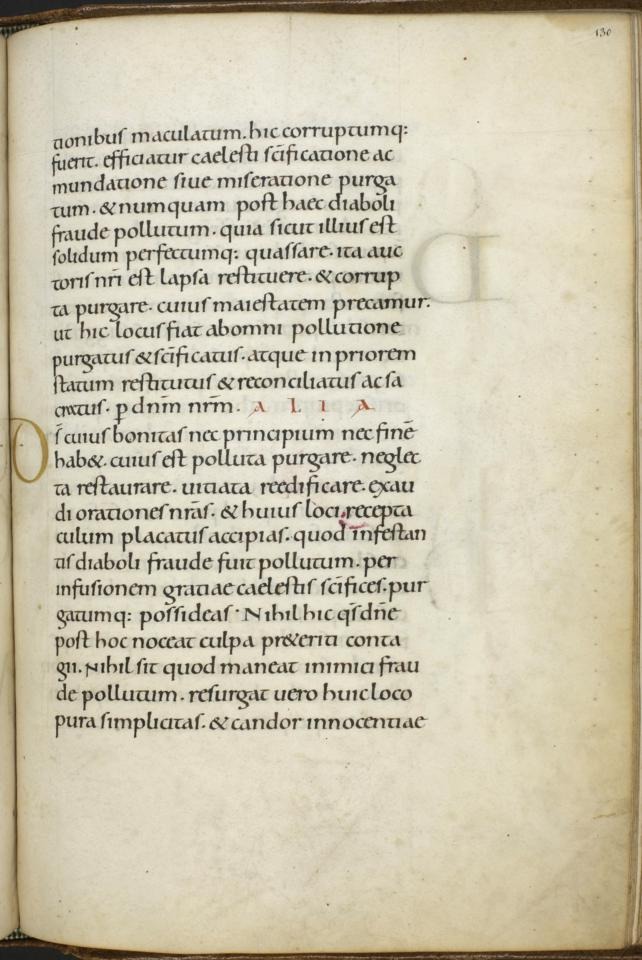 130
tionibus maculatum. hic corruptumq:
fuerit. efficiatur caelesti scīficatione ac
mundatione siue miseratione purga
tum. & numquam post haec diaboli
fraude pollutum. quia sicut illius est
solidum perfectumq: quassare. ita auc
toris nr̄i est lapsa restituere. & corrup
ta purgare. cuius maiestatem precamur.
ut hic locus fiat abomni pollutione
purgatus & scīficatus. atque in priorem
statum restitutus & reconciliatus ac sa
cratus. p̄ dn̄m nr̄m. ALIA
Ds̄ cuius bonitas nec principium nec finē
hab&. cuius est polluta purgare. neglec
ta restaurare. uitiata reedificare. exau
di orationes nr̄as. & huius loci. recepta
culum placatus accipias. quod infestan
tis diaboli fraude fuit pollutum. per
infusionem gratiae caelestis scīfices. pur
gatumq: possideas. Nihil hic qs̄ dn̄e
post hoc noceat culpa pr&eriti conta
gii. Nihil sit quod maneat inimici frau
de pollutum. resurgat uero huic loco
pura simplicitas. & candor innocentiae